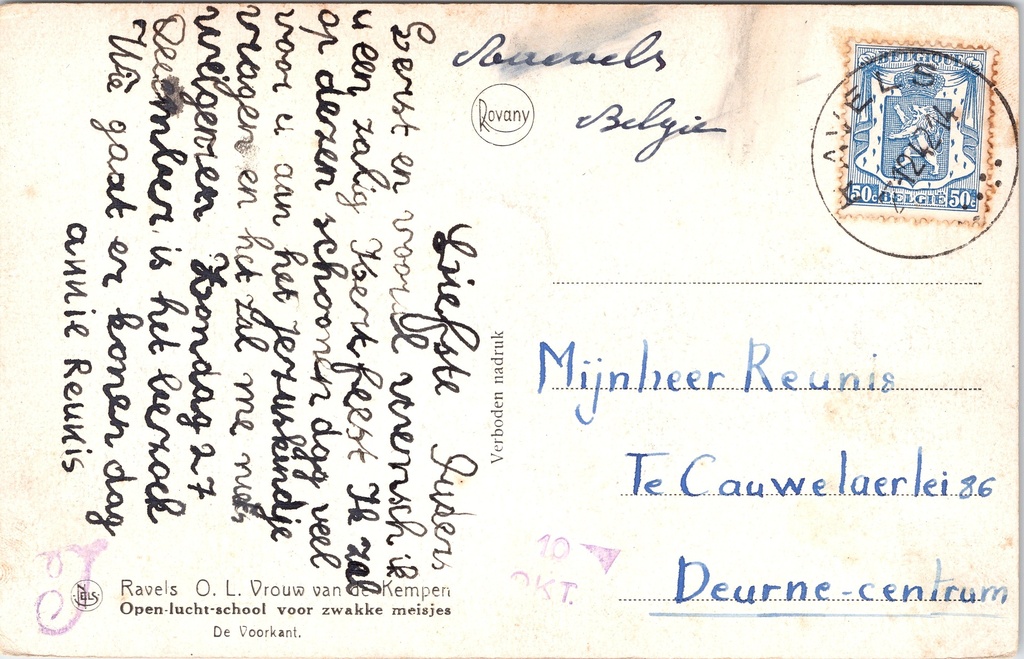 Ravels
België
Rovany
BELGIQUE
RAVELS
50c BELGIË 50c
Liefste Ouders
Eerst en vooral wensch ik
u een zalig Kerstfeest Ik zal
op dezen schoonen dag veel
voor u aan het Jezuskindje
vragen en het zal me niets
weigeren Zondag 27
December is het bezoek
Wie gaat er komen dag
annie Reunis
Verboden nadruk
Mijnheer Reunis
Te Cauwelaerlei 86
Deurne-centrum
10
OKT.
NELS
Ravels O. L. Vrouw van de Kempen
Open-lucht-school voor zwakke meisjes
De Voorkant.